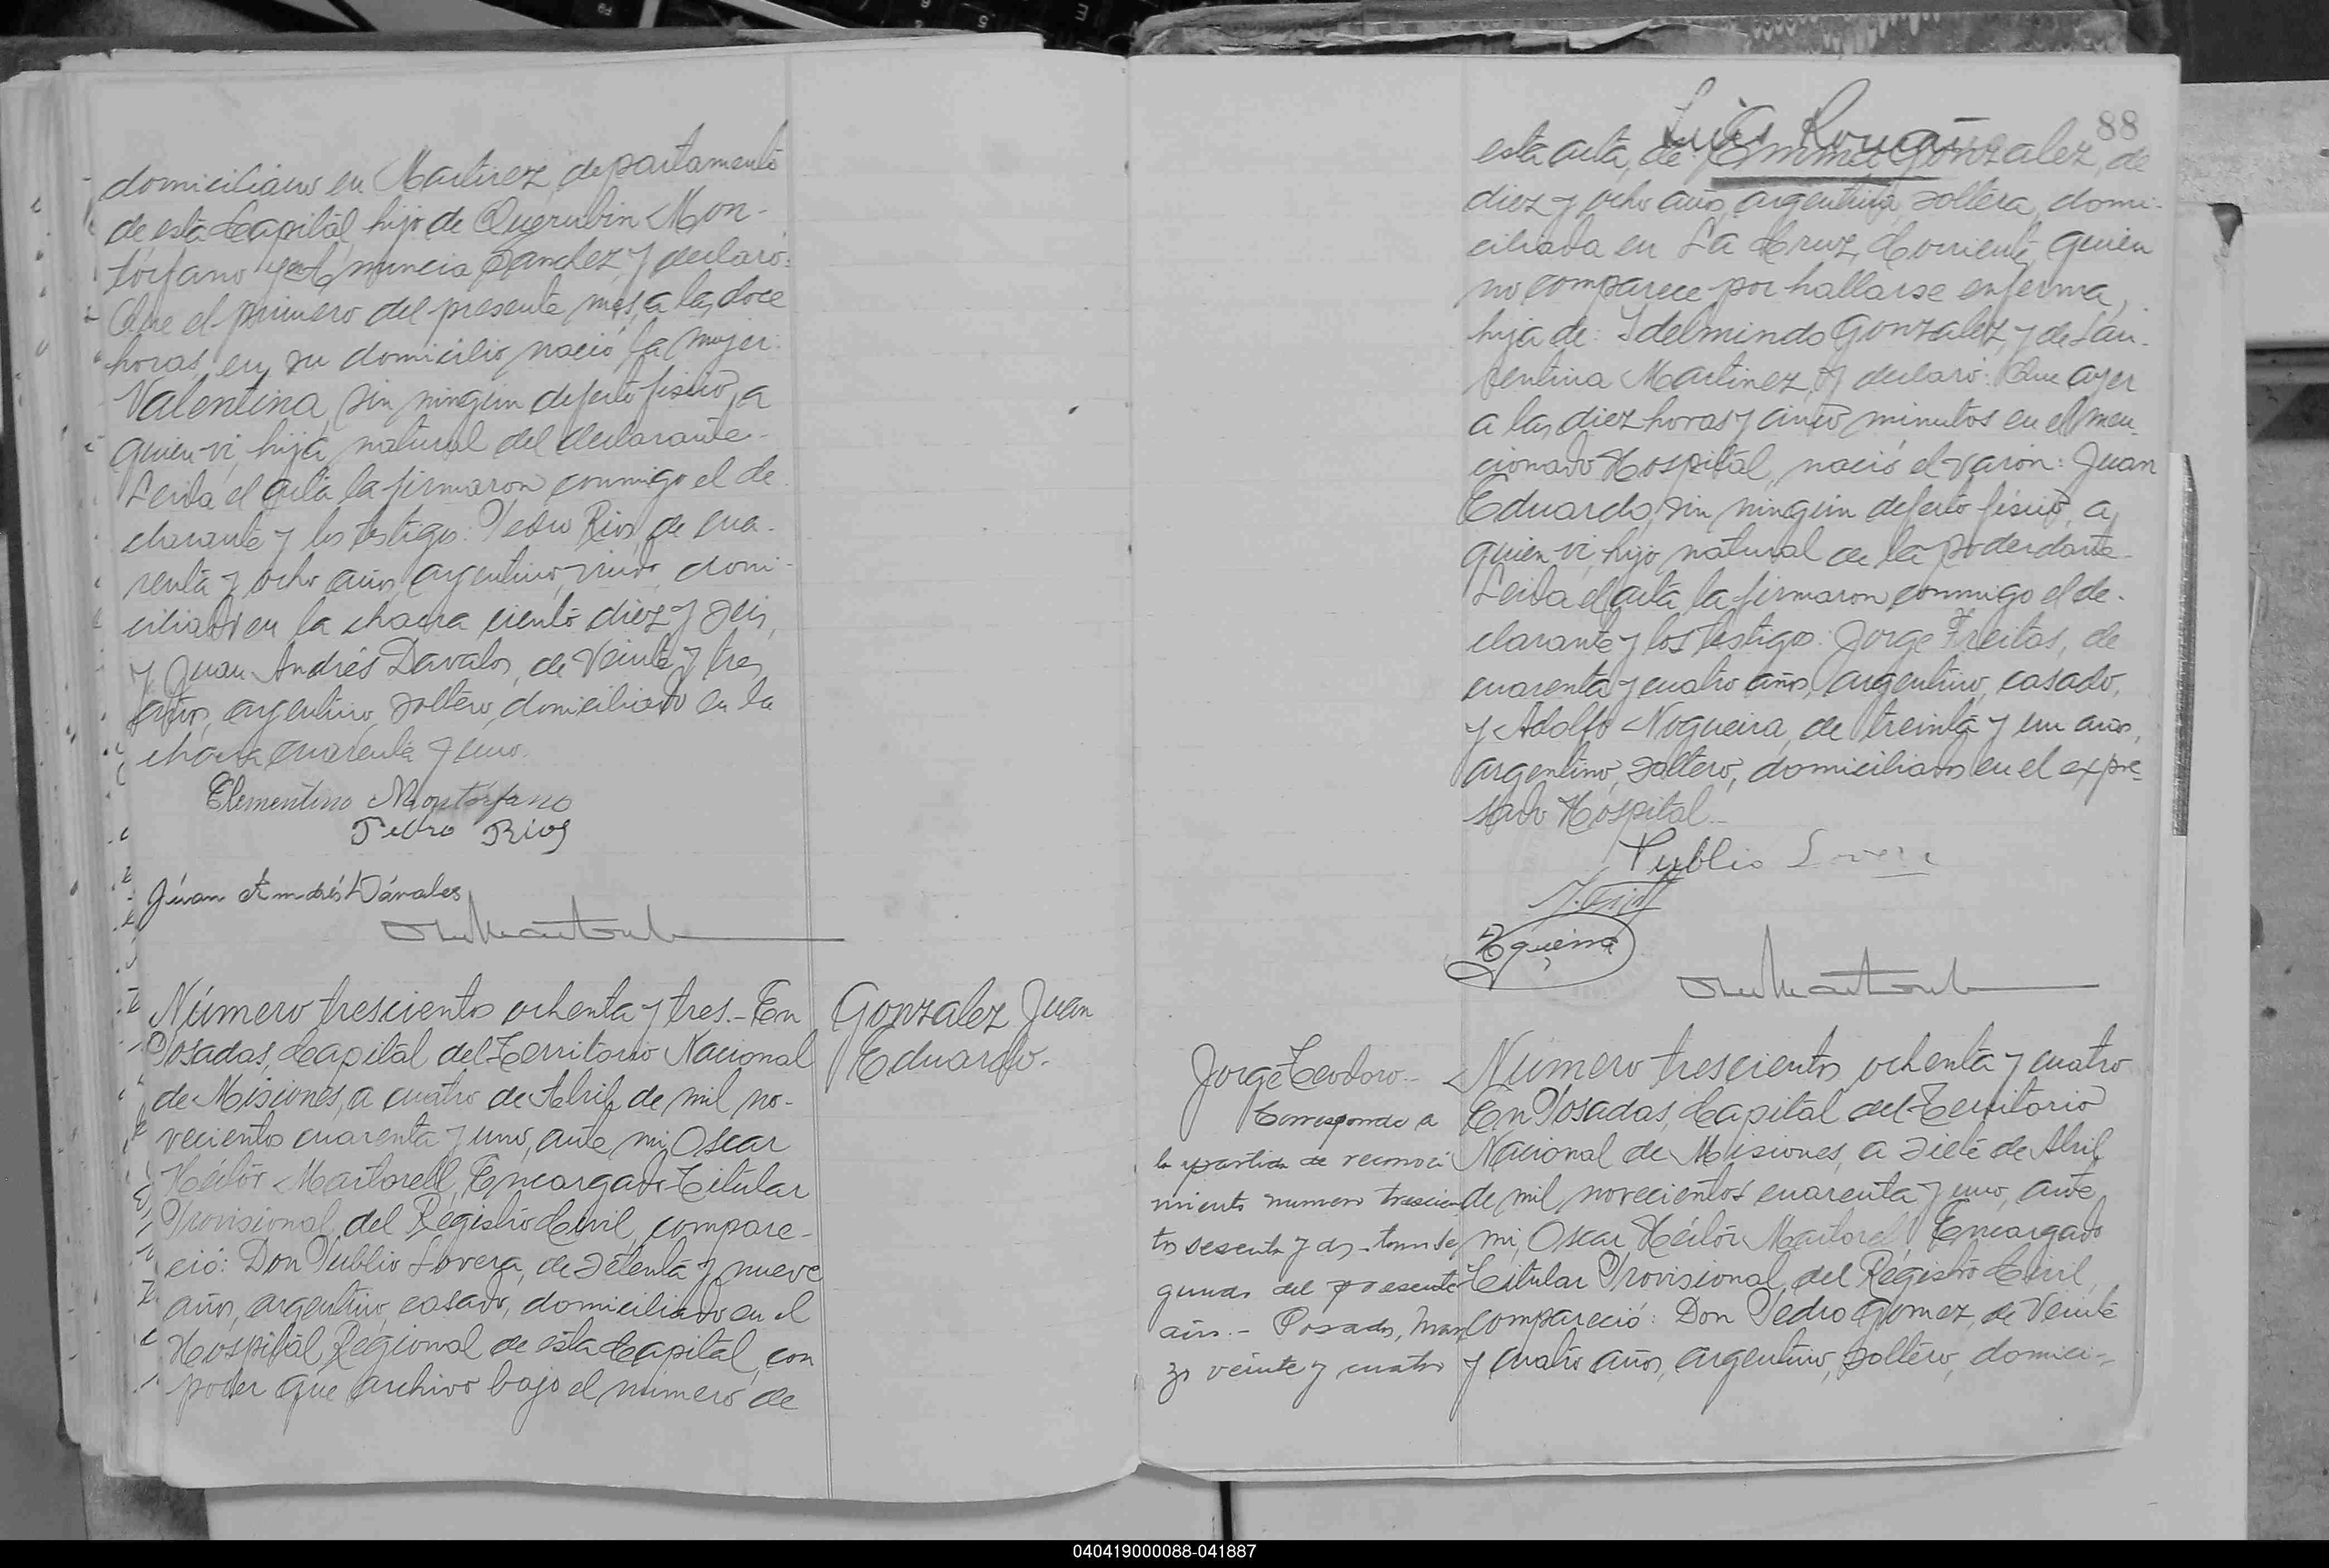 domiciliado en Martirez, departamento
de esta Capital, hijo de Querubin Mon-
torfano y de Anuncia Sanchez, y declaró:
Que el primero del presente mes, a las doce
horas, en su domicilio nació la mujer:
Valentina, sin ningún defecto fisico, a
quien vi, hija natural del declarante.-
Leida el acta la firmaron conmigo el de-
clarante y los testigos: Pedro Rios, de cua-
renta y ocho años, argentino, viudo, domi-
ciliado en la chacra ciento diez y seis,
y Juan Andrés Davalos, de veinte y tres
años, argentino, soltero, domiciliado en la
chacra cuarenta y uno.
Clementino Montorfano
Pedro Rios
Juan Andrés Dávalos
Número trescientos ochenta y tres.- En
Posadas, Capital del Territorio Nacional
de Misiones, a cuatro de Abril de mil no-
vecientos cuarenta y uno, ante mi, Oscar
Héctor Martorell, Encargado Titular
Provisional, del Registro Civil, compare-
ció: Don Publio Lovera, de setenta y nueve
años, argentino, casado, domiciliado en el
Hospital Regional de esta Capital, con
poder que archivo bajo el número de
Gonzalez Juan
Eduardo.-
88
esta acta, de: Emma Gonzalez, de
diez y ocho años, argentina, soltera, domi-
ciliada en La Cruz, Corrientes, quien
no comparece por hallarse enferma,
hija de: Idelmindo Gonzalez, y de Lau-
rentina Martinez, y declaró: Que ayer
a las diez horas y cinco minutos en el men-
cionado Hospital, nació el varón: Juan
Eduardo, sin ningún defecto físico, a
quien vi, hijo natural de la poderdante.-
Leida el acta la firmaron conmigo el de-
clarante y los testigos: Jorge Freitas, de
cuarenta y cuatro años, argentino, casado,
y Adolfo Nogueira, de treinta y un años,
argentino, soltero, domiciliados en el expre-
sado Hospital.-
Publio Lovera
Jorge Teodoro.-
Corresponde a
la partida de reconoci
miento numero trescien
tos sesenta y dos tomo se
gundo del presente
año.- Posadas, Mar
zo veinte y cuatro
Número trescientos ochenta y cuatro
En Posadas, Capital del Territorio
Nacional de Misiones, a siete de Abril
de mil novecientos cuarenta y uno, ante
mi, Oscar Héctor Martorell, Encargado
Titular Provisional, del Registro Civil,
compareció: Don Pedro Gomez, de veinte
y cuatro años, argentino, soltero, domici-
040419000088-041887